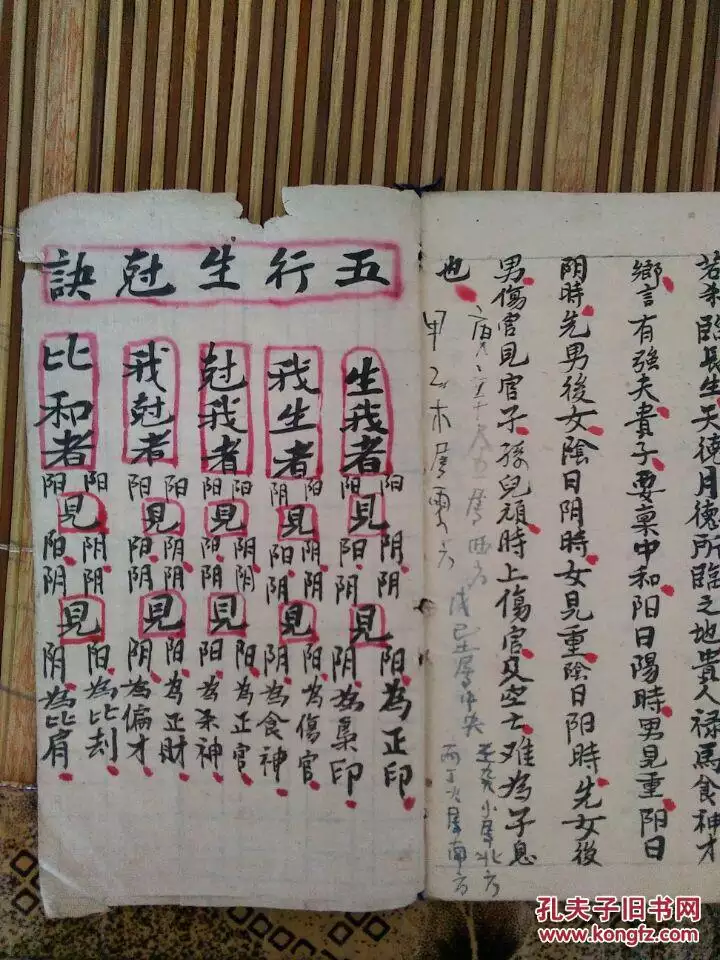 若求臨長生天德月德所臨之地貴人祿馬食神才
鄉言有強夫貴子要稟中和阳日陽時男見重阳日
阴時先男後女陰日阴時女見重陰日阳時先女後
男傷官見官子孫兒頑時上傷官及空亡难為子息
也
甲乙木属東方
属西方
戊己土属中央
壬癸水属北方
丙丁火属南方
五行生尅訣
生我者
阳見阴阴見阳為正印
阳阳阴阴為梟印
我生者
阳見阴阴見阳為傷官
阴阳阴阴為食神
尅我者
阳見阴阴見阳為正官
阳阳阴阳為杀神
我尅者
阳見阴阴見阳為正財
阳阳阴阴為偏才
比和者
阳見阴阴見阳為比刦
阳阳阴阴為比肩
孔夫子旧书网
www.kongfz.com